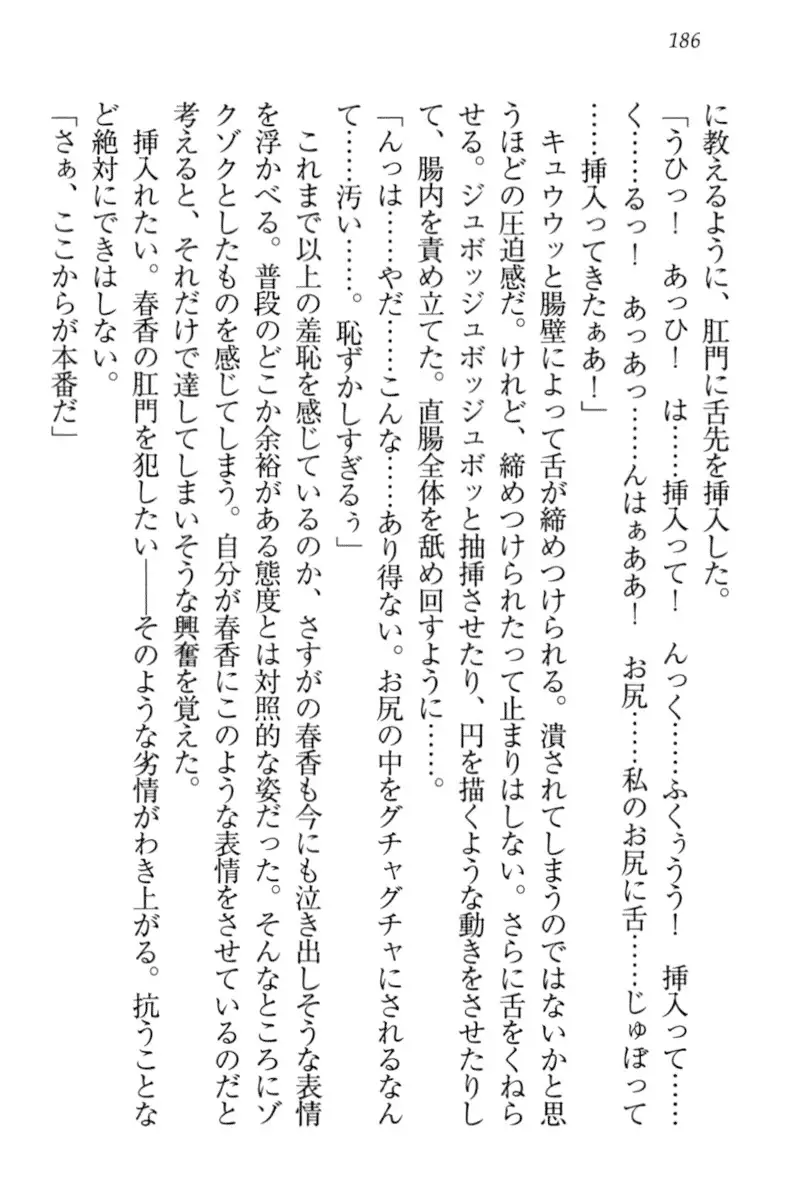 186
に教えるように、肛門に舌先を挿入した。
「うひっ！　あっひ！　は……挿入って！　んっく……ふくぅうう！　挿入って……
く……るっ！　あっあっ……んはぁああ！　お尻……私のお尻に舌……じゅぼって
……挿入ってきたぁあ！」
キュウウッと腸壁によって舌が締めつけられる。潰されてしまうのではないかと思
うほどの圧迫感だ。けれど、締めつけられたって止まりはしない。さらに舌をくねら
せる。ジュボッジュボッジュボッと抽挿させたり、円を描くような動きをさせたりし
て、腸内を責め立てた。直腸全体を舐め回すように……。
「んっは……やだ……こんな……あり得ない。お尻の中をグチャグチャにされるなん
て……汚い……。恥ずかしすぎるぅ」
これまで以上の羞恥を感じているのか、さすがの春香も今にも泣き出しそうな表情
を浮かべる。普段のどこか余裕がある態度とは対照的な姿だった。そんなところにゾ
クゾクとしたものを感じてしまう。自分が春香にこのような表情をさせているのだと
考えると、それだけで達してしまいそうな興奮を覚えた。
挿入れたい。春香の肛門を犯したい――そのような劣情がわき上がる。抗うことな
ど絶対にできはしない。
「さぁ、ここからが本番だ」